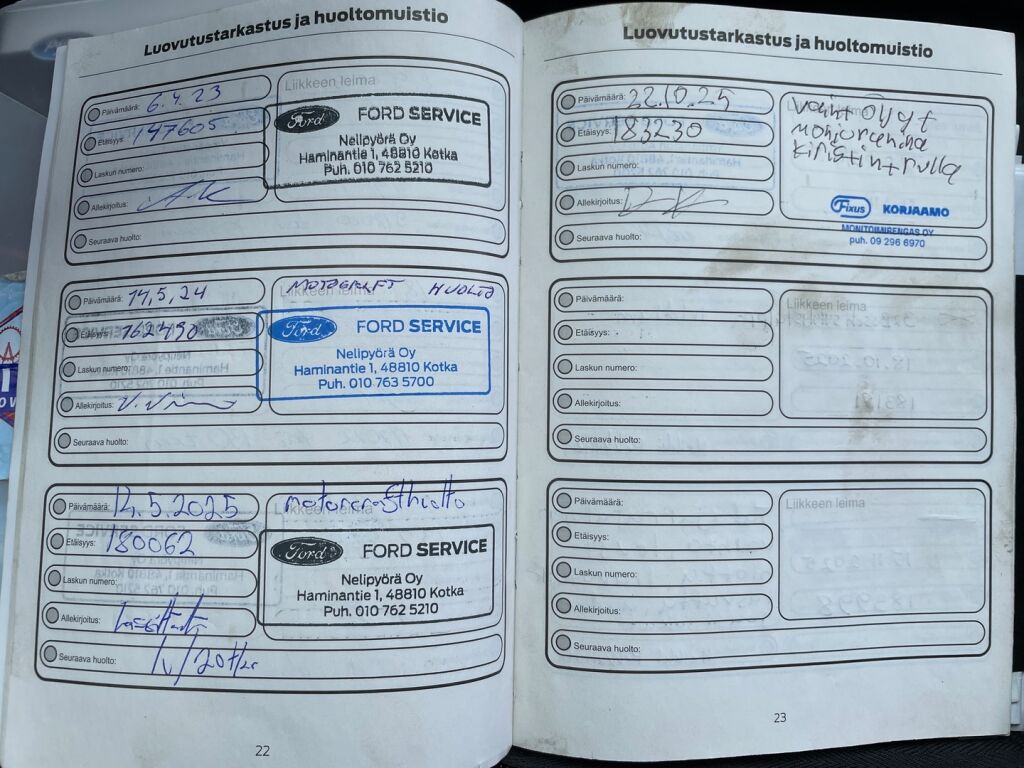 Luovutustarkastus ja huoltomuistio
Päivämäärä: 6.4.23
Etäisyys: 147605
Laskun numero:
Allekirjoitus:
Seuraava huolto:
Liikkeen leima
Ford FORD SERVICE
Nelipyörä Oy
Haminantie 1, 48810 Kotka
Puh. 010 762 5210
Päivämäärä: 14,5,24
Etäisyys: 162490
Laskun numero:
Allekirjoitus:
Seuraava huolto:
MOTOCRAFT HUOLTO
Liikkeen leima
Ford FORD SERVICE
Nelipyörä Oy
Haminantie 1, 48810 Kotka
Puh. 010 763 5700
Päivämäärä: 14.5.2025
Etäisyys: 180062
Laskun numero:
Allekirjoitus:
Seuraava huolto: 1v/20tkm
motorcrafthuolto
Liikkeen leima
Ford FORD SERVICE
Nelipyörä Oy
Haminantie 1, 48810 Kotka
Puh. 010 762 5210
22
Luovutustarkastus ja huoltomuistio
Päivämäärä: 22.10.25
Etäisyys: 183230
Laskun numero:
Allekirjoitus:
Seuraava huolto:
vaiht öljyt
moniurahihna
kiristin+rulla
Fixus KORJAAMO
MONITOIMIRENGAS OY
puh. 09 296 6970
Päivämäärä:
Etäisyys:
Laskun numero:
Allekirjoitus:
Seuraava huolto:
Liikkeen leima
Päivämäärä:
Etäisyys:
Laskun numero:
Allekirjoitus:
Seuraava huolto:
Liikkeen leima
23